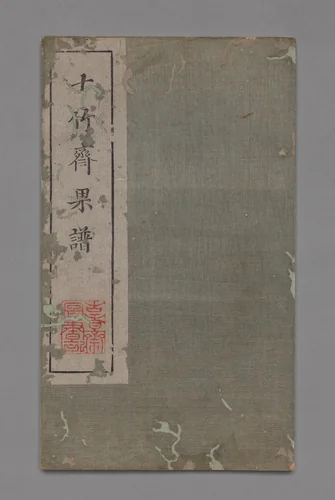 十竹齊果譜